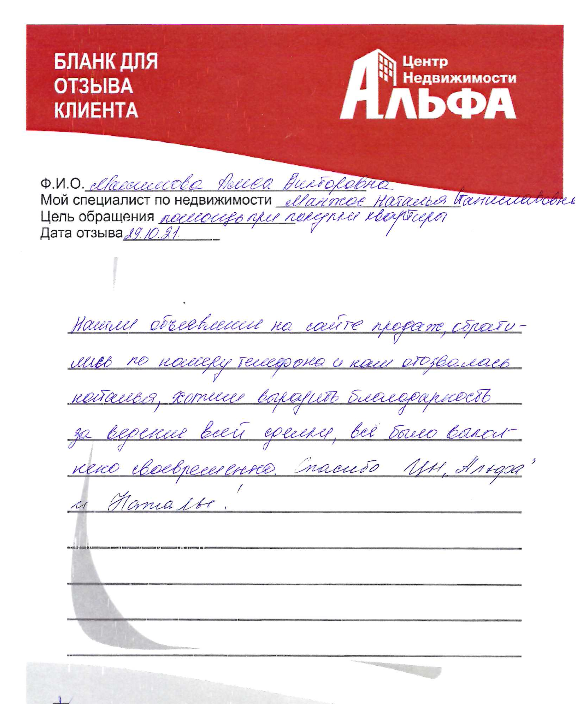 БЛАНК ДЛЯ
ОТЗЫВА
КЛИЕНТА
Центр
Недвижимости
АЛЬФА
Ф.И.О. Виктировна
Мой специалист по недвижимости Манжос Наталья Станиславовна
Цель обращения помощь при покупке квартиры
Дата отзыва 29.10.21
Нашли объевление на сайте продаж, обрати-
лись по номеру телефона и нам отозвалась
наталья, хотим выразить благодарность
за ведение всей сделки, всё было выпол-
нено своевременно. Спасибо ЦН "Альфа"
и Наталье!